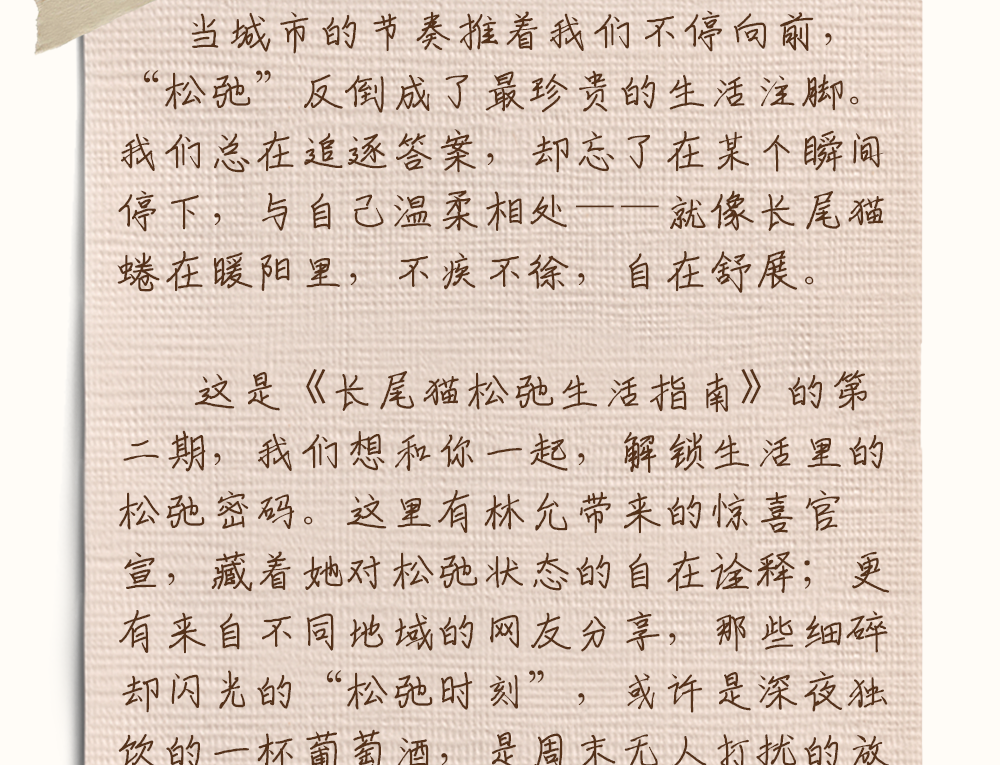 当城市的节奏推着我们不停向前，
“松弛”反倒成了最珍贵的生活注脚。
我们总在追逐答案，却忘了在某个瞬间
停下，与自己温柔相处——就像长尾猫
蜷在暖阳里，不疾不徐，自在舒展。
这是《长尾猫松弛生活指南》的第
二期，我们想和你一起，解锁生活里的
松弛密码。这里有林允带来的惊喜官
宣，藏着她对松弛状态的自在诠释；更
有来自不同地域的网友分享，那些细碎
却闪光的“松弛时刻”，或许是深夜独
饮的一杯葡萄酒，是周末无人打扰的放